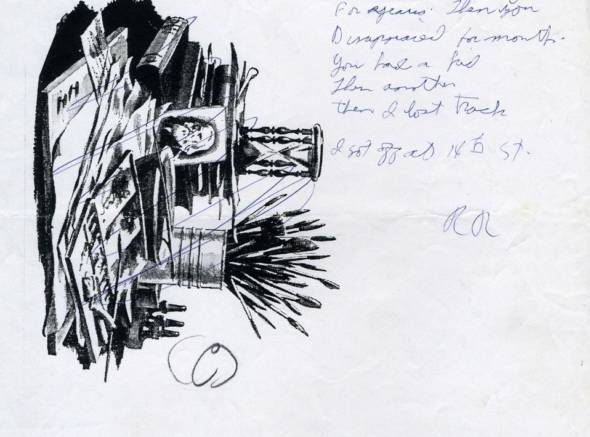 For years. Then you
Disappeared for months.
You had a kid
Then another
Then I lost track
I got off at 14th St.
RR